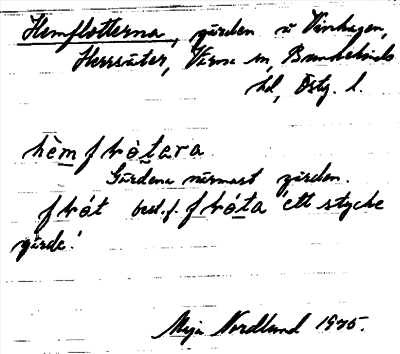 Hemflotterna, gärden å Vinhagen,
Herrsäter, Värna sn, Bankekinds
hd, Östg. l.
hèmfḷòtara
Gärdena närmast gården.
flot best. f. flota 'ett stycke
gärde'.
Maja Nordlund 1935.